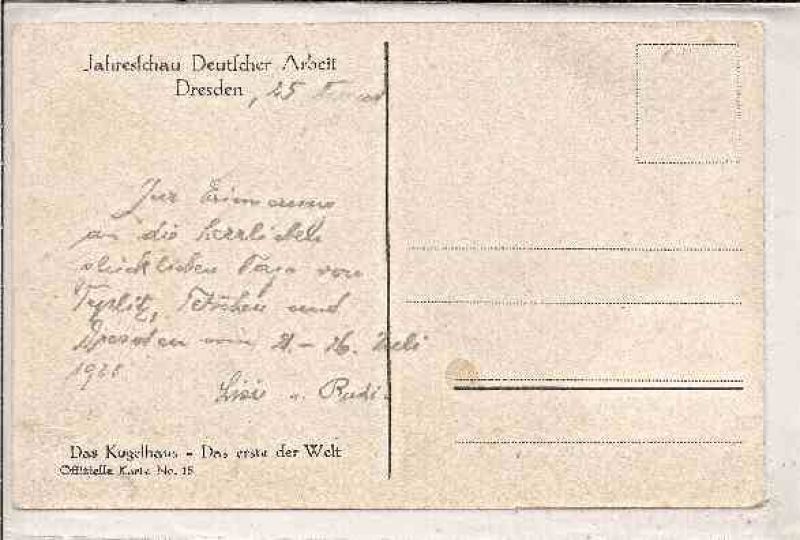 Jahresschau Deutscher Arbeit
Dresden, 25
Zur Erinnerung
an die herrlichen
glücklichen Tage von
Teplitz, Tetschen und
Dresden vom 21 - 26. Juli
1928
Lisi u. Rudi.
Das Kugelhaus - Das erste der Welt
Offizielle Karte No. 15